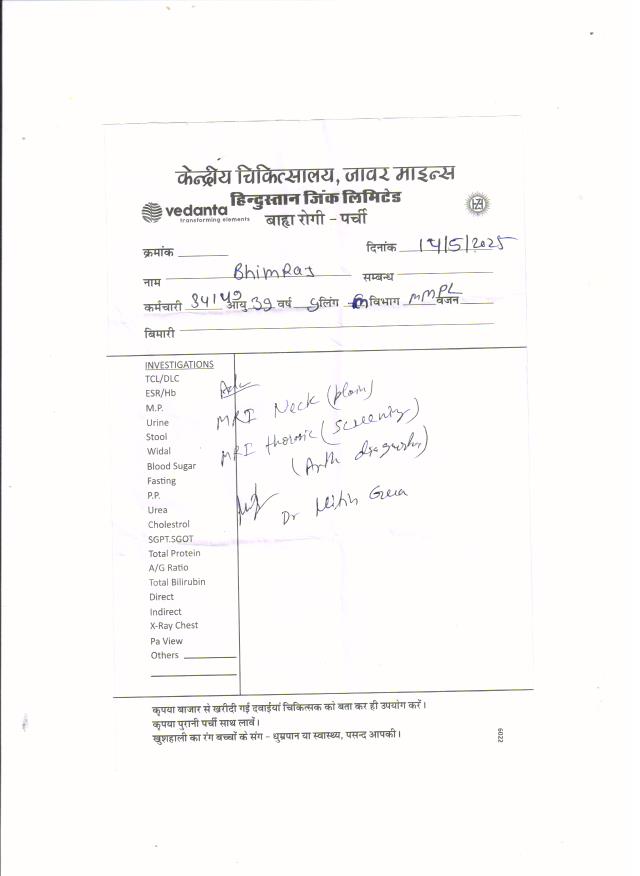 केन्द्रीय चिकित्सालय, जावर माइन्स
हिन्दुस्तान जिंक लिमिटेड
vedanta
transforming elements
बाह्य रोगी - पर्ची
HZL
क्रमांक दिनांक 14/5/2025
नाम BhimRaj सम्बन्ध
कर्मचारी 34149 आयु 39 वर्ष लिंग विभाग MMPL वजन
बिमारी
INVESTIGATIONS
TCL/DLC
ESR/Hb
M.P.
Urine
Stool
Widal
Blood Sugar
Fasting
P.P.
Urea
Cholestrol
SGPT.SGOT
Total Protein
A/G Ratio
Total Bilirubin
Direct
Indirect
X-Ray Chest
Pa View
Others
Adv
MRI Neck (plain)
MRI thoracic (screening)
Dr Nitin
कृपया बाजार से खरीदी गई दवाईयां चिकित्सक को बता कर ही उपयोग करें।
कृपया पुरानी पर्ची साथ लावें।
खुशहाली का रंग बच्चों के संग - धुम्रपान या स्वास्थ्य, पसन्द आपकी।
6022